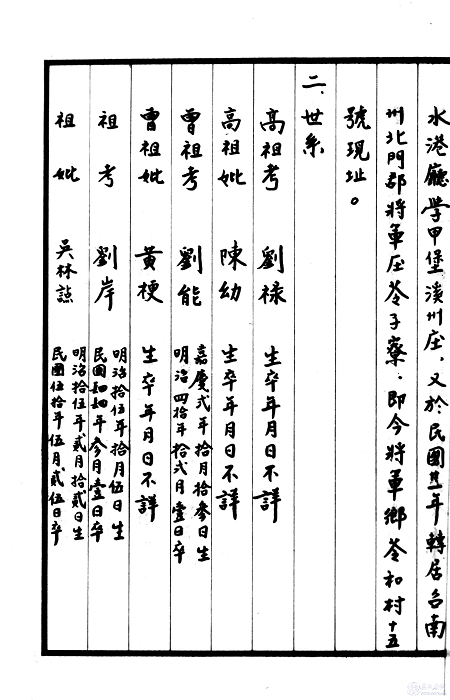 水港廳學甲堡漬州庄，又於民國年轉居台南
州北門郡將軍庄苓子寮，即今將軍鄉苓和村十五
號現址。
二、世系
高祖考 劉祿 生卒年月日不詳
高祖妣 陳幼 生卒年月日不詳
曾祖考 劉能 嘉慶弍年拾月拾參日生
明治四拾年拾弍月壹日卒
曾祖妣 黃梗 生卒年月日不詳
祖考 劉岸 明治拾伍年拾月伍日生
民國年參月壹日卒
祖妣 吳林 明治拾伍年貳月拾貳日生
民國伍拾年伍月貳伍日卒